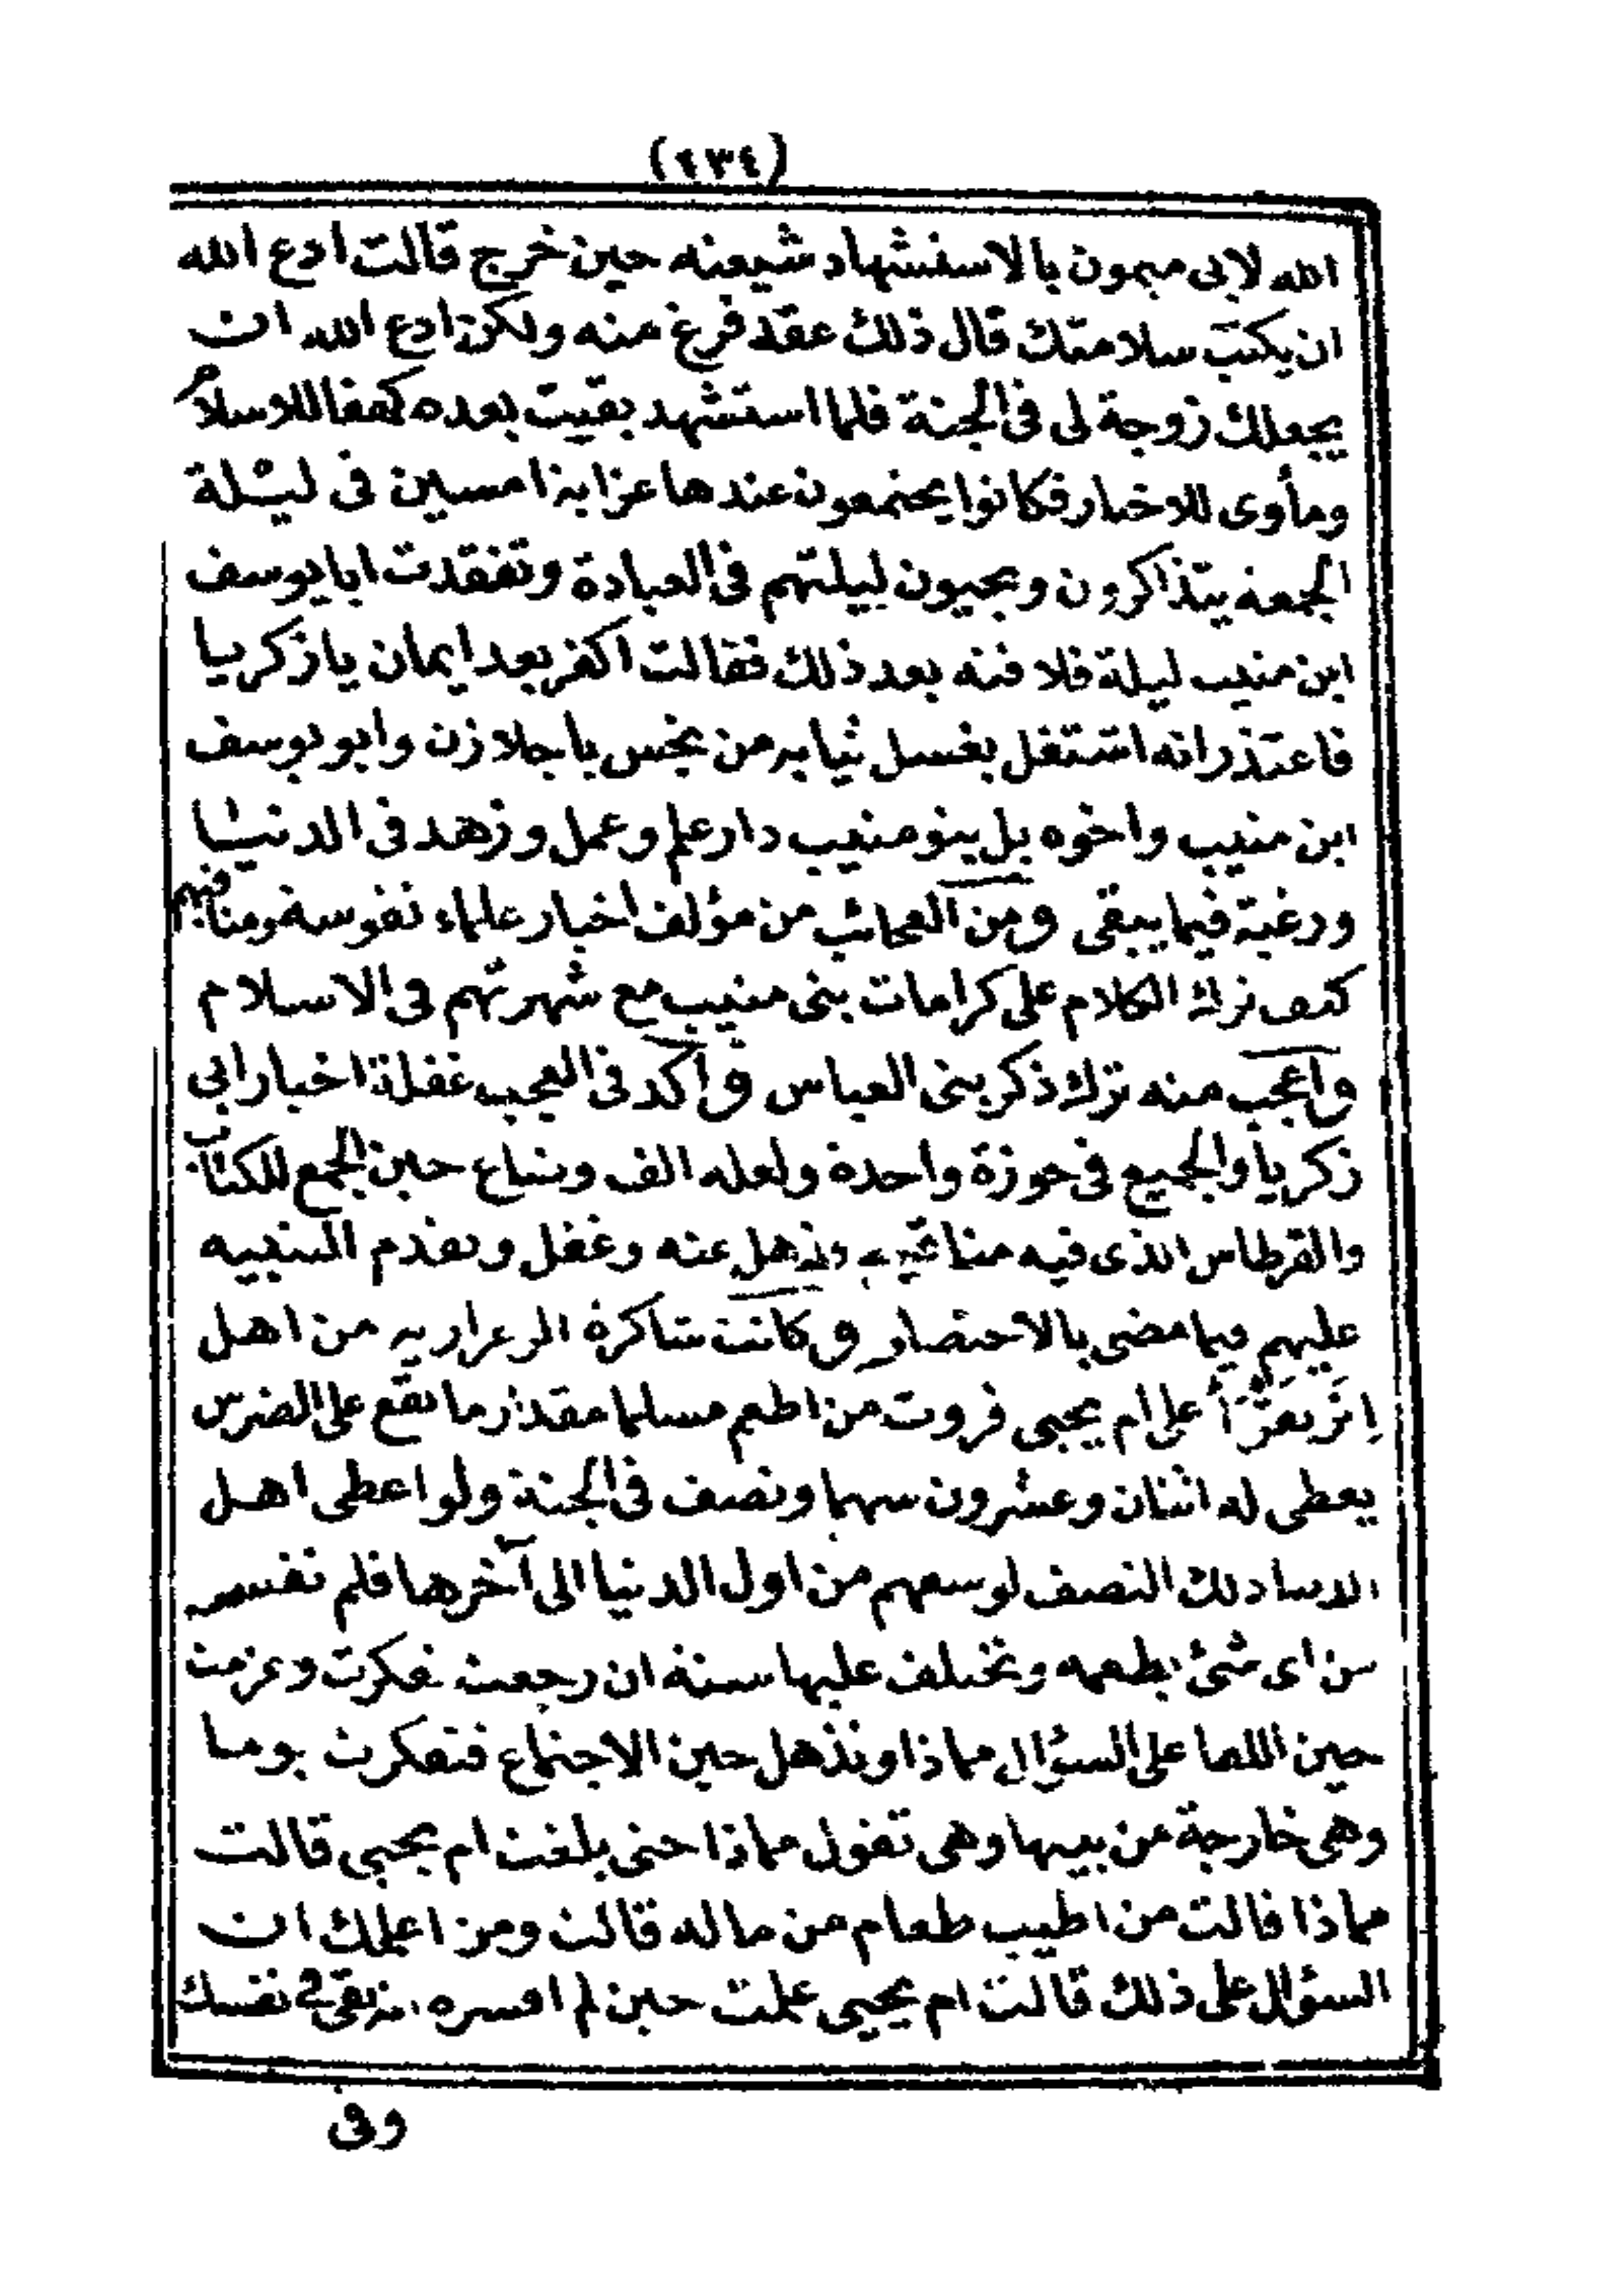 (٢٣٤)
الله لابى ميمون بالاستشهاد شيعته حين خرج قالت ادع الله
ان يكتب سلامتك قال ذلك عقد فرغ منه ولكن ادع الله ان
يجعلك زوجة لى فى الجنة فلما استشهد بقيت بعده كهفا للاسلام
ومأوى للاخيار فكانوا يجتمعون عندها عزابة امسين فى ليلة
الجمعه يتذاكرون ويحيون ليلتهم فى العبادة وتفقدت ابا يوسف
ابن منيب ليلة فلاقته بعد ذلك فقالت اكفر بعد ايمان يا زكريا
فاعتذر انه اشتغل بغسل ثيابه من نجس باجلازن وابو يوسف
ابن منيب واخوه بل بنو منيب دار علم وعمل وزهد فى الدنيا
ورغبة فيما يبقى ومن العجائب من مؤلف اخبار علماء نفوسة ومناقبهم
كيف ترك الكلام على كرامات بنى منيب مع شهرتهم فى الاسلام
واعجب منه ترك ذكر بنى العباس وآكد فى العجب غفلة اخبار ابى
زكريا والجميع فى حوزة واحدة ولعله الف وضاع حين الجمع للكتاب
والقرطاس الذى فيه مناقبهم وذهل عنه وغفل وتقدم التنبيه
عليهم فيما مضى بالاختصار وكانت شاكرة الزعرارية من اهل
على ام يحيى فروت من اطعم مسلما مقدار ما تقع على الضرس
يعطى له اثنان وعشرون سهما ونصف فى الجنة ولو اعطى اهل
الدنيا ذلك النصف لوسعهم من اول الدنيا الى آخرها فلم تفسر
من اى شئ يطعمه وتختلف عليها سنة ان رجعت تفكرت وعزمت
حين اللقا على السؤال مماذا وتذهل حين الاجتماع فتفكرت يوما
وهى خارجة من بيتها وهى تقول مماذا حتى بلغت ام يحيى قالت
مماذا قالت من اطيب طعام من ماله قالت ومن اعلمك ان
السؤال على ذلك قالت ام يحيى علمت حين لم افسره نفسك
وفى